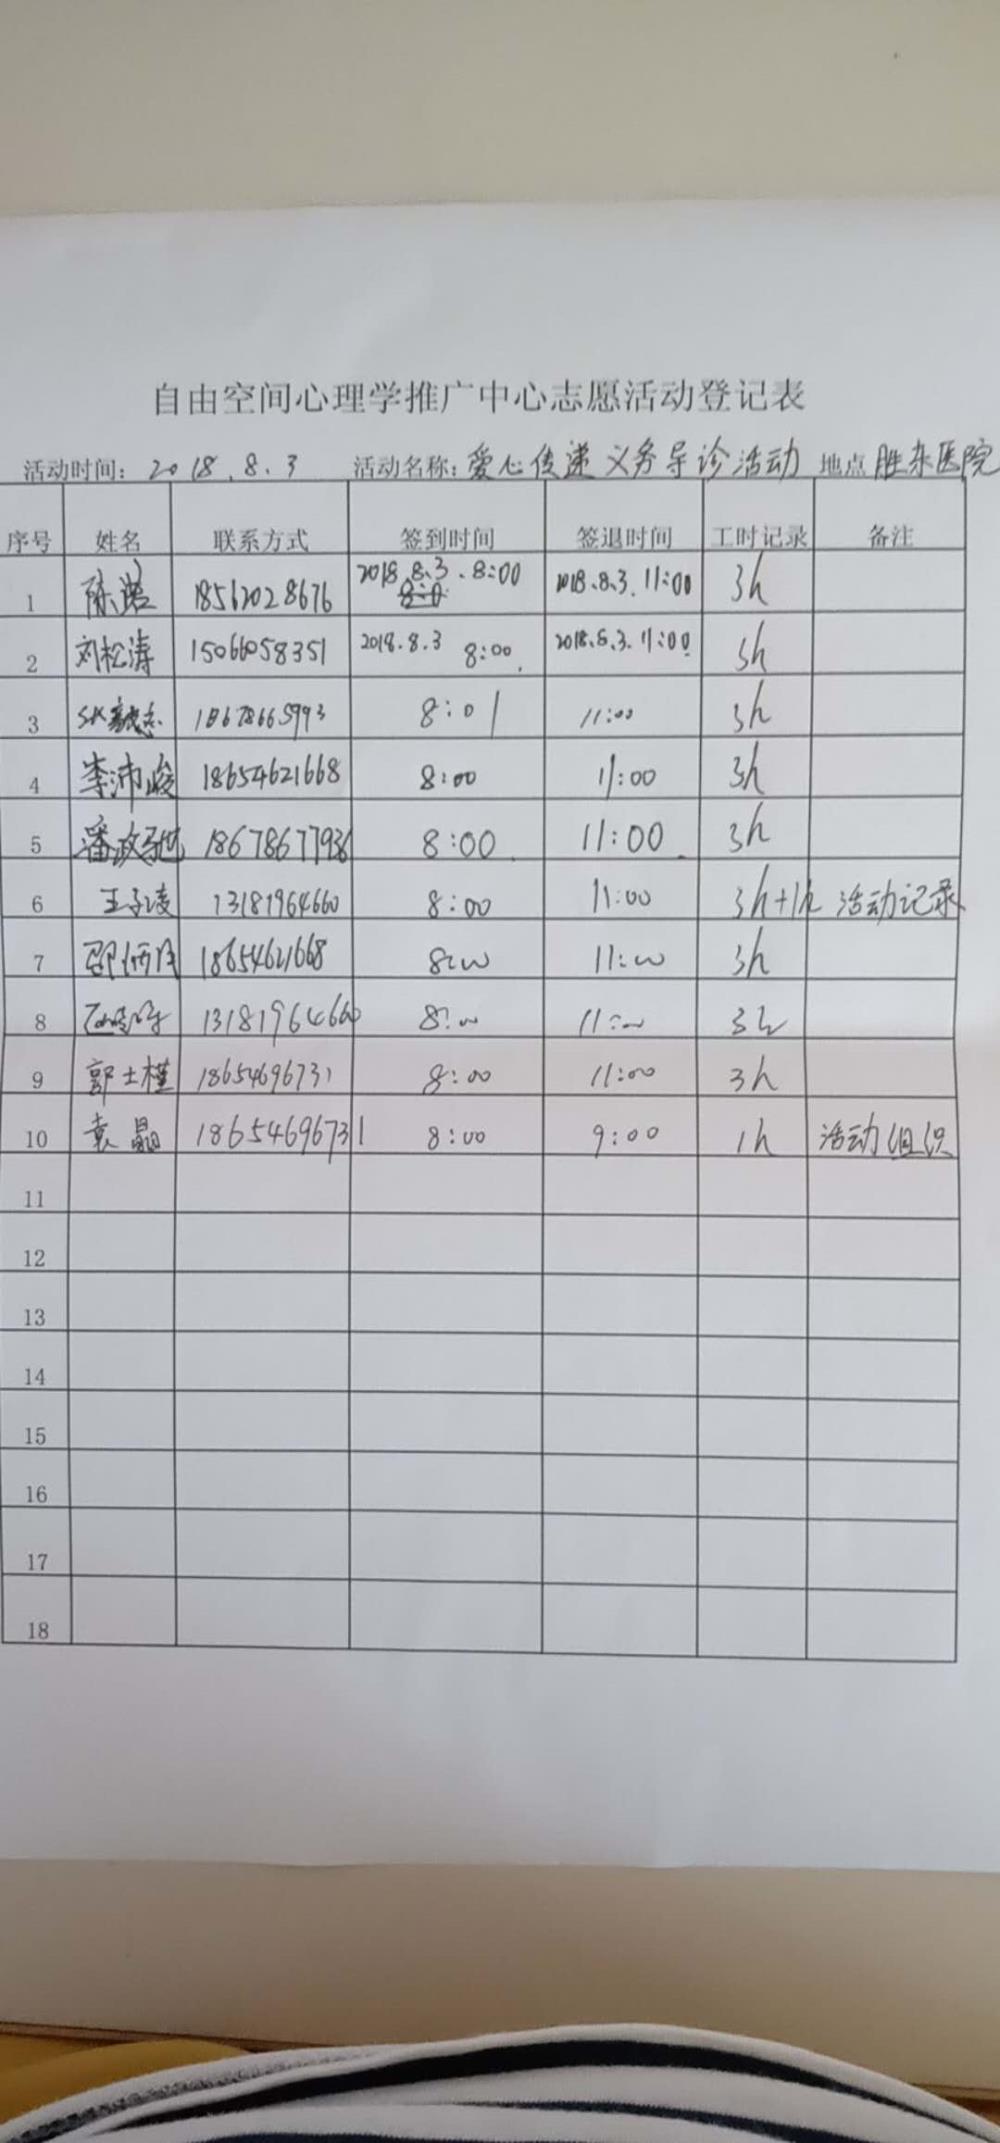 自由空间心理学推广中心志愿活动登记表
活动时间: 2018.8.3 活动名称: 爱心传递义务导诊活动 地点 胜东医院
序号 姓名 联系方式 签到时间 签退时间 工时记录 备注
1 陈 18562028676 2018.8.3.8:00 2018.8.3.11:00 3h
2 刘松涛 15066058351 2018.8.3 8:00 2018.8.3.11:00 3h
3 18678665993 8:01 11:00 3h
4 李沛峻 18654621668 8:00 11:00 3h
5 潘政驰 18678677936 8:00 11:00 3h
6 王子凌 13181964660 8:00 11:00 3h+1h 活动记录
7 邵炳 18654621668 8:00 11:00 3h
8 13181964660 8:00 11:00 3h
9 郭士槿 18654696731 8:00 11:00 3h
10 袁晶 18654696731 8:00 9:00 1h 活动组织
11
12
13
14
15
16
17
18